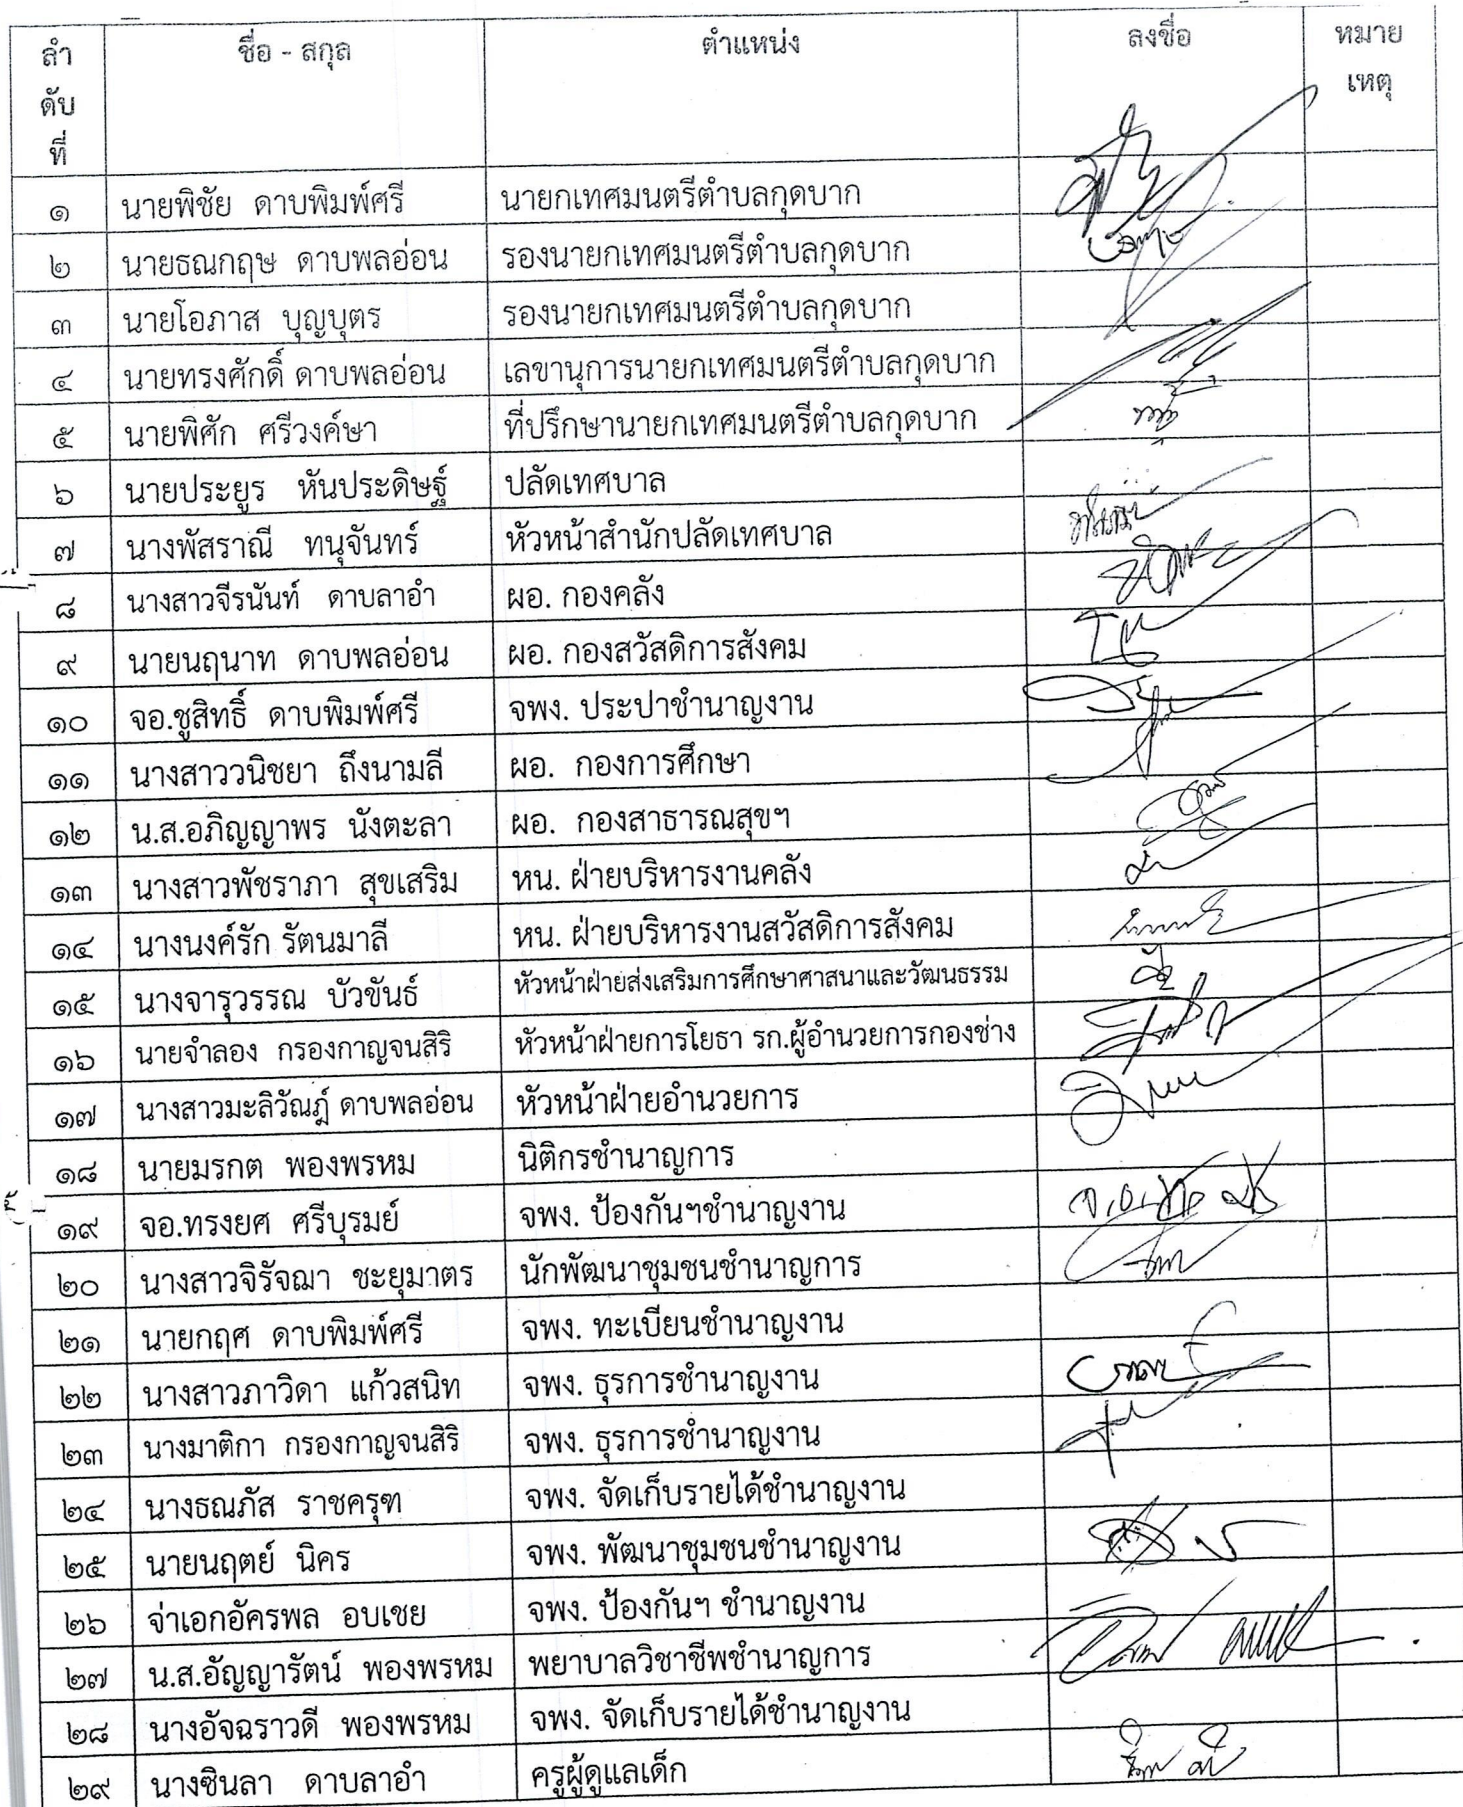 ลำดับที่ ชื่อ - สกุล ตำแหน่ง ลงชื่อ หมายเหตุ
๑ นายพิชัย ดาบพิมพ์ศรี นายกเทศมนตรีตำบลกุดบาก
๒ นายธณกฤษ ดาบพลอ่อน รองนายกเทศมนตรีตำบลกุดบาก
๓ นายโอภาส บุญบุตร รองนายกเทศมนตรีตำบลกุดบาก
๔ นายทรงศักดิ์ ดาบพลอ่อน เลขานุการนายกเทศมนตรีตำบลกุดบาก
๕ นายพิศัก ศรีวงค์ษา ที่ปรึกษานายกเทศมนตรีตำบลกุดบาก
๖ นายประยูร หันประดิษฐ์ ปลัดเทศบาล
๗ นางพัสราณี ทนุจันทร์ หัวหน้าสำนักปลัดเทศบาล
๘ นางสาวจีรนันท์ ดาบลาอำ ผอ. กองคลัง
๙ นายนฤนาท ดาบพลอ่อน ผอ. กองสวัสดิการสังคม
๑๐ จอ.ชูสิทธิ์ ดาบพิมพ์ศรี จพง. ประปาชำนาญงาน
๑๑ นางสาววนิชยา ถึงนามลี ผอ. กองการศึกษา
๑๒ น.ส.อภิญญาพร นังตะลา ผอ. กองสาธารณสุขฯ
๑๓ นางสาวพัชราภา สุขเสริม หน. ฝ่ายบริหารงานคลัง
๑๔ นางนงค์รัก รัตนมาลี หน. ฝ่ายบริหารงานสวัสดิการสังคม
๑๕ นางจารุวรรณ บัวขันธ์ หัวหน้าฝ่ายส่งเสริมการศึกษาศาสนาและวัฒนธรรม
๑๖ นายจำลอง กรองกาญจนสิริ หัวหน้าฝ่ายการโยธา รก.ผู้อำนวยการกองช่าง
๑๗ นางสาวมะลิวัณฎ์ ดาบพลอ่อน หัวหน้าฝ่ายอำนวยการ
๑๘ นายมรกต พองพรหม นิติกรชำนาญการ
๑๙ จอ.ทรงยศ ศรีบุรมย์ จพง. ป้องกันฯชำนาญงาน
๒๐ นางสาวจิรัจฌา ชะยุมาตร นักพัฒนาชุมชนชำนาญการ
๒๑ นายกฤศ ดาบพิมพ์ศรี จพง. ทะเบียนชำนาญงาน
๒๒ นางสาวภาวิดา แก้วสนิท จพง. ธุรการชำนาญงาน
๒๓ นางมาติกา กรองกาญจนสิริ จพง. ธุรการชำนาญงาน
๒๔ นางธณภัส ราชครุฑ จพง. จัดเก็บรายได้ชำนาญงาน
๒๕ นายนฤตย์ นิคร จพง. พัฒนาชุมชนชำนาญงาน
๒๖ จ่าเอกอัครพล อบเชย จพง. ป้องกันฯ ชำนาญงาน
๒๗ น.ส.อัญญารัตน์ พองพรหม พยาบาลวิชาชีพชำนาญการ
๒๘ นางอัจฉราวดี พองพรหม จพง. จัดเก็บรายได้ชำนาญงาน
๒๙ นางซินลา ดาบลาอำ ครูผู้ดูแลเด็ก